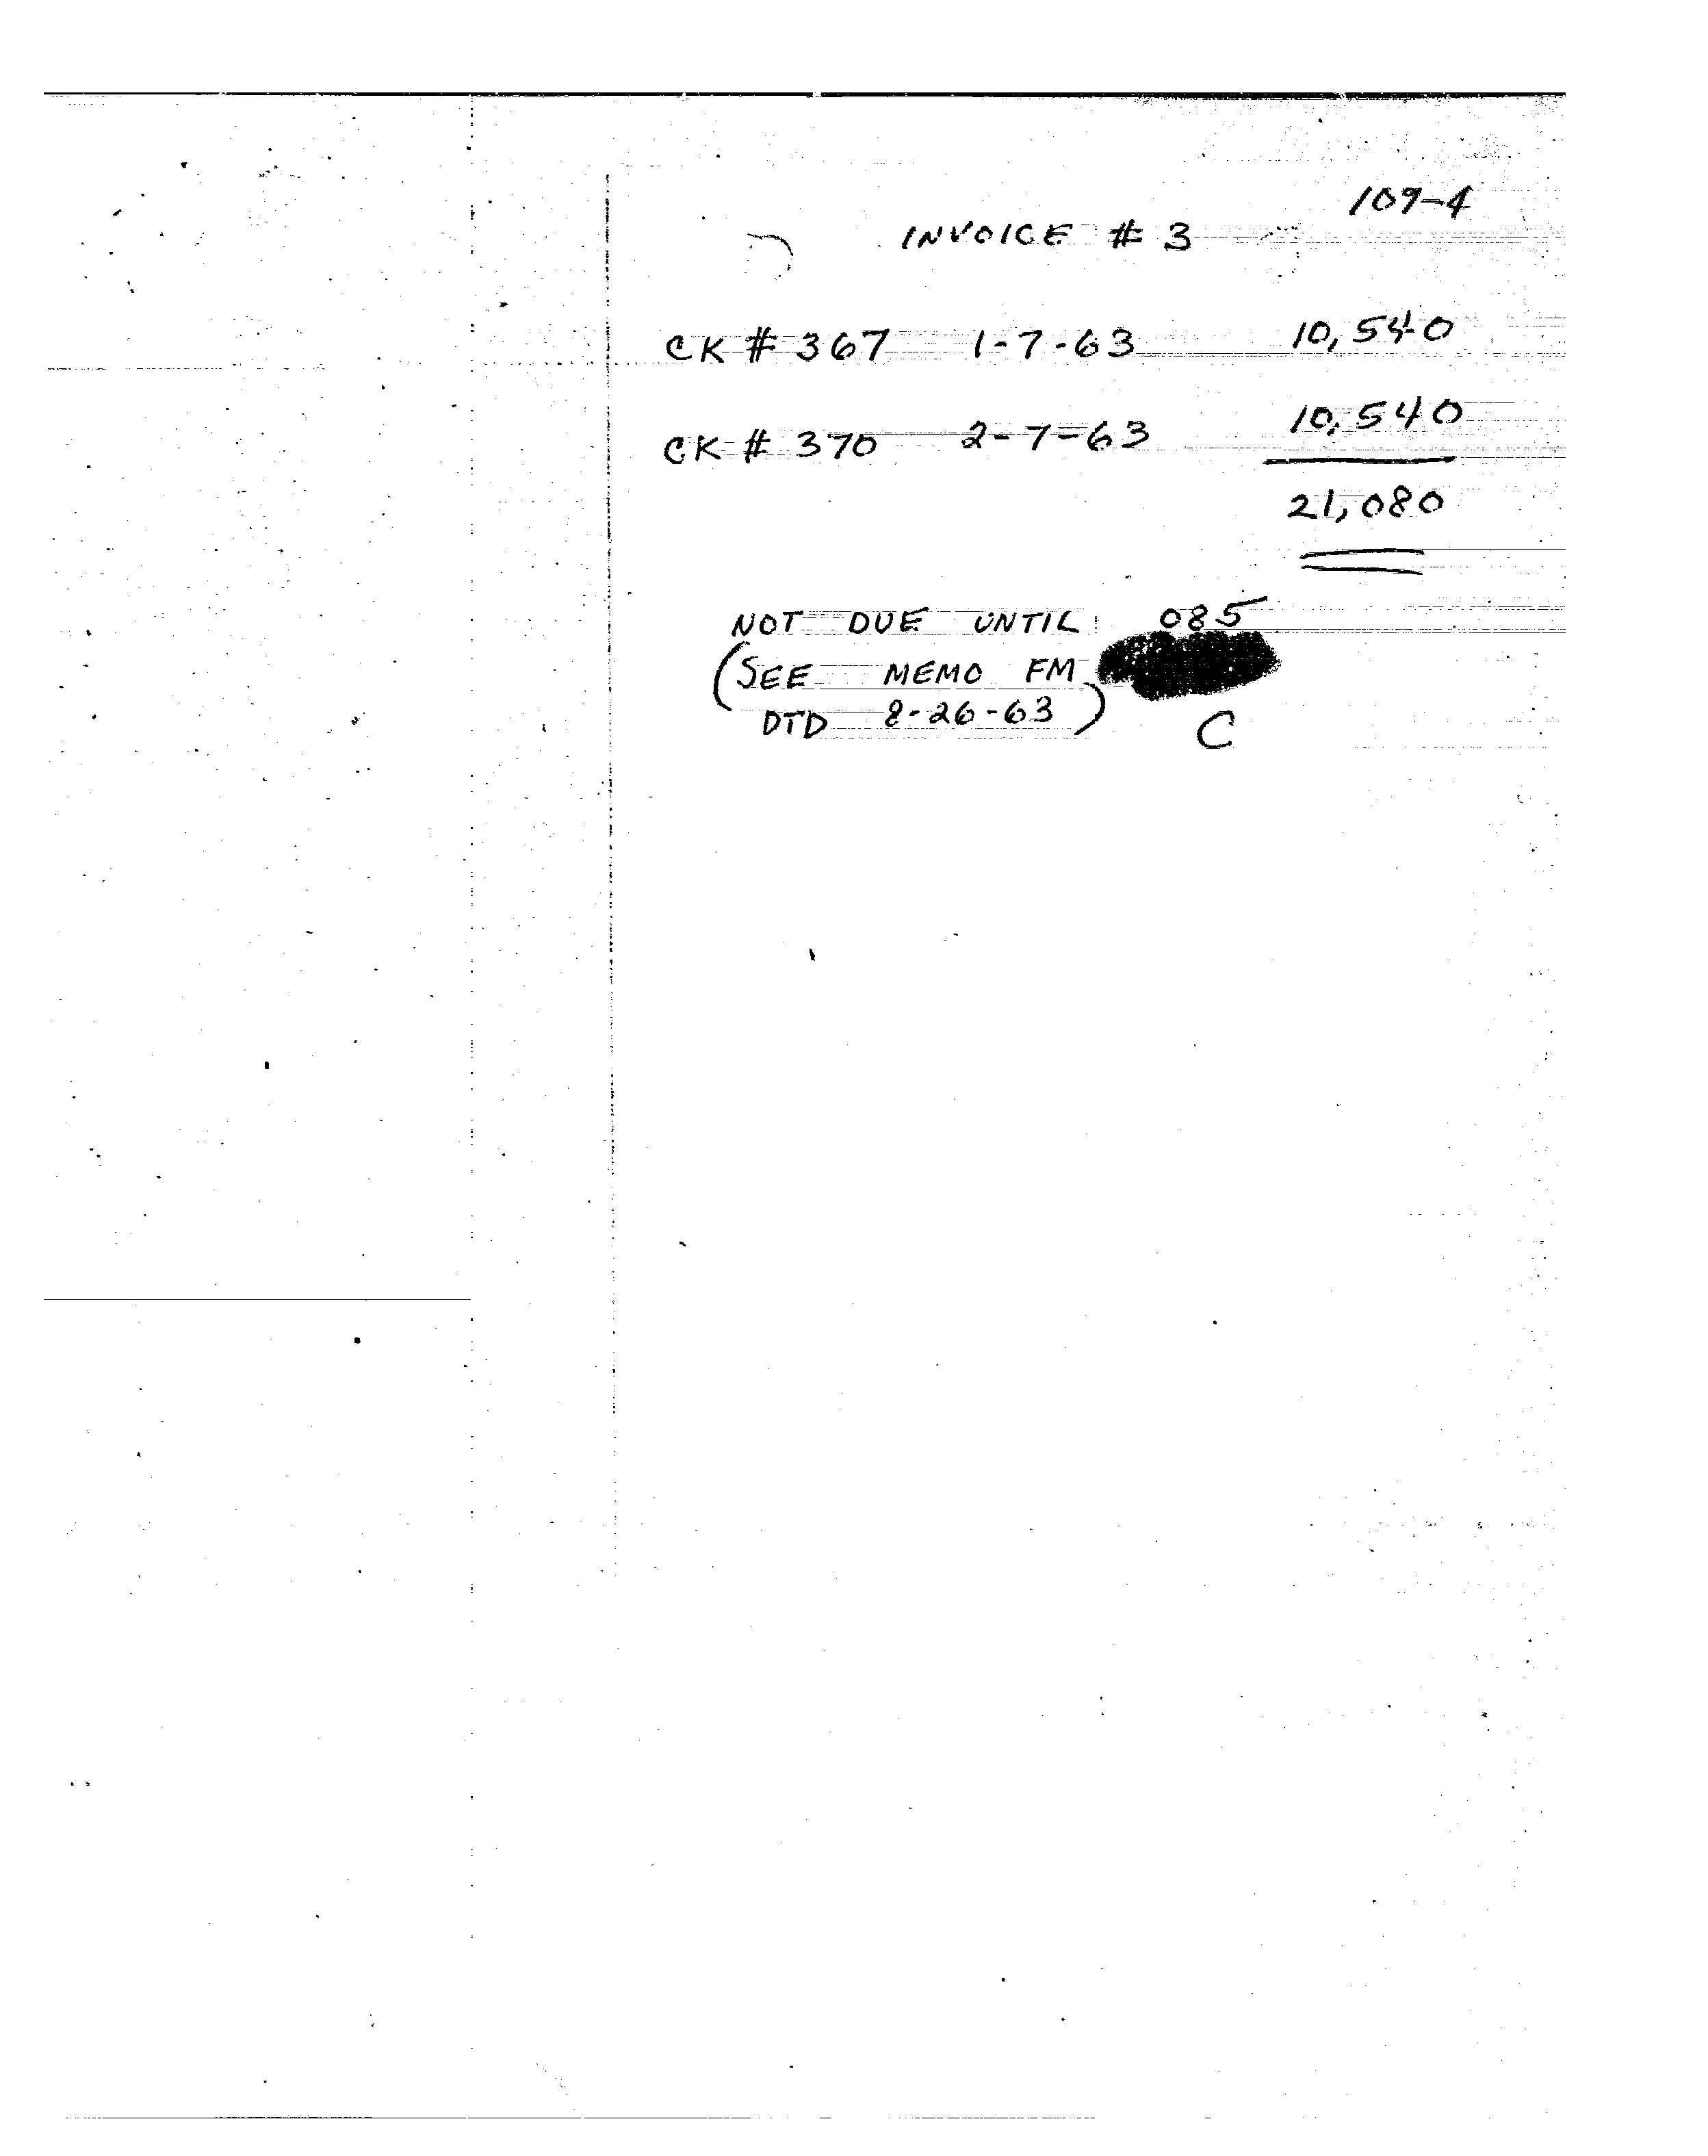 109-4
INVOICE # 3
CK # 367 1-7-63 10,540
CK # 370 2-7-63 10,540
21,080
NOT DUE UNTIL 085
(SEE MEMO FM
DTD 8-26-63) C